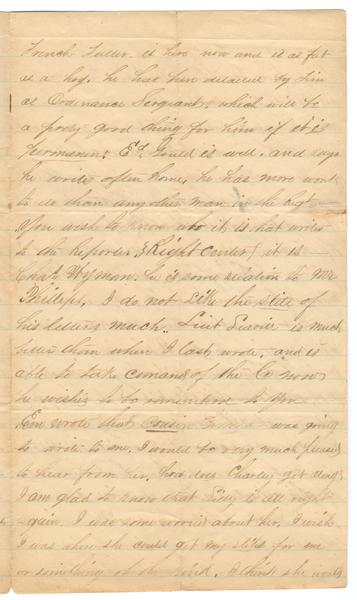 French Fuller is here now and is as fat
as a hog. he has been detailed by him
as Ordinance Sergeant, which will be
a prety good thing for him if it is
permanent. Ed. Gould is well. and says
he writes often home, he has more work
to do than any other man in the Regt
You wish to know who it is that writes
to the Reporter, (Right center) it is
Wyman. he is some relation to Mr
Phillips, I do not like the stile of
his letters much. Lieut is much
better than when I last wrote, and is
able to take comand of the Co now
he wishes to be remembered to you
Em wrote that cousin was going
to write to me. I would be very much pleased
to hear from her. how does Charley get along
I am glad to know that is all right
again. I was some worried about her. I wish
I was where she could get my slips for me
or something of the kind. I think she would